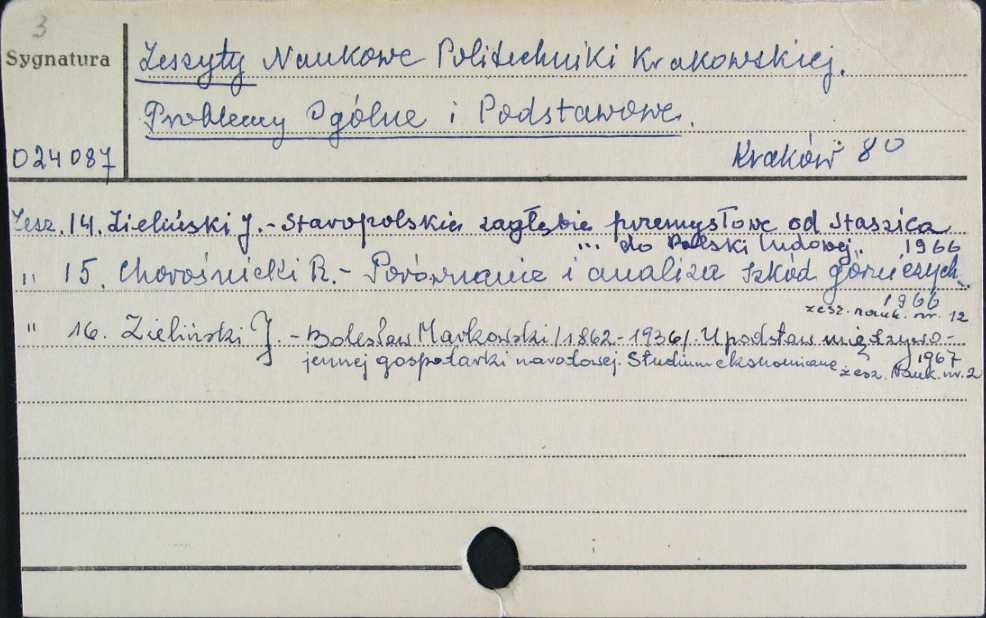 3
Sygnatura
Zeszyty Naukowe Politechniki Krakowskiej.
Problemy Ogólne i Podstawowe.
024087
Kraków 8°
Zesz. 14. Zieliński J. - Staropolskie zagłębie przemysłowe od Staszica
do Polski Ludowej. 1966
" 15. Chorośnicki R. - Porównanie i analiza szkód górniczych.
1966
zesz. nauk. nr. 12
" 16. Zieliński J. - Bolesław Markowski /1862-1936/. U podstaw międzywo-
jennej gospodarki narodowej. Studium ekonomiczne 1967
zesz. Nauk. nr. 2